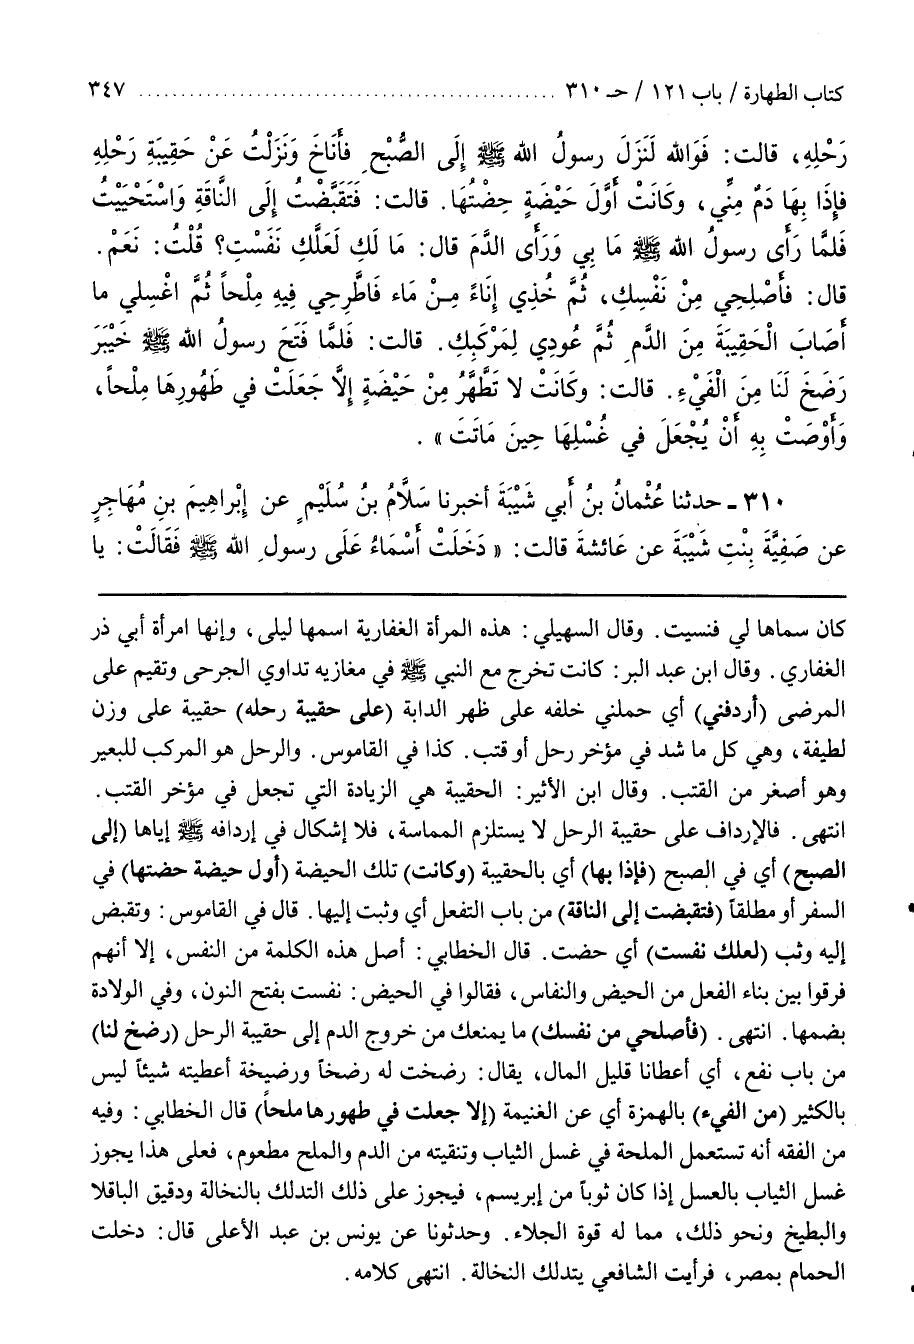 كتاب الطهارة / باب ١٢١ / حـ ٣١٠ ................................................ ٣٤٧
رَحْلِهِ، قالت: فَوَالله لَنَزَلَ رسولُ الله ﷺ إِلَى الصُّبْحِ فأَنَاخَ وَنَزَلْتُ عَنْ حَقِيبَةِ رَحْلِهِ
فإِذَا بِهَا دَمٌ مِنِّي، وكَانَتْ أَوَّلَ حَيْضَةٍ حِضْتُهَا. قالت: فَتَقَبَّضْتُ إِلَى النَّاقَةِ وَاسْتَحْيَيْتُ
فَلمَّا رَأَى رسولُ الله ﷺ مَا بِي وَرَأَى الدَّمَ قال: مَا لَكِ لَعَلَّكِ نَفَسْتِ؟ قُلْتُ: نَعَمْ.
قال: فأَصْلِحِي مِنْ نَفْسِكِ، ثُمَّ خُذِي إِنَاءً مِـنْ مَاء فَاطَّرِحِي فِيهِ مِلْحاً ثُمَّ اغْسِلي ما
أَصَابَ الْحَقِيبَةَ مِنَ الدَّمِ ثُمَّ عُودِي لِمَرْكَبِكِ. قالت: فَلمَّا فَتَحَ رسولُ الله ﷺ خَيْبَرَ
رَضَخَ لَنَا مِنَ الْفَيْءِ. قالت: وكَانَتْ لا تَطَّهَّرُ مِنْ حَيْضَةٍ إِلَّا جَعَلَتْ في طَهُورِهَا مِلْحاً،
وَأَوْصَتْ بِهِ أَنْ يُجْعَلَ في غُسْلِهَا حِينَ مَاتَتَ» .
٣١٠ ـ حدثنا عُثْمانُ بنُ أبي شَيْبَةَ أخبرنا سَلَّامُ بنُ سُلَيْمٍ عن إِبْراهِيمَ بنِ مُهَاجِرٍ
عن صَفِيَّةَ بِنْتِ شَيْبَةَ عن عَائشةَ قالت: «دَخَلَتْ أَسْمَاءُ عَلَى رسولِ الله ﷺ فَقَالَتْ: يا
كان سماها لي فنسيت. وقال السهيلي: هذه المرأة الغفارية اسمها ليلى، وإنها امرأة أبي ذر
الغفاري. وقال ابن عبد البر: كانت تخرج مع النبي ﷺ في مغازيه تداوي الجرحى وتقيم على
المرضى (أردفني) أي حملني خلفه على ظهر الدابة (على حقيبة رحله) حقيبة على وزن
لطيفة، وهي كل ما شد في مؤخر رحل أو قتب. كذا في القاموس. والرحل هو المركب للبعير
وهو أصغر من القتب. وقال ابن الأثير: الحقيبة هي الزيادة التي تجعل في مؤخر القتب.
انتهى. فالإرداف على حقيبة الرحل لا يستلزم المماسة، فلا إشكال في إردافه ﷺ إياها (إلى
الصبح) أي في الصبح (فإذا بها) أي بالحقيبة (وكانت) تلك الحيضة (أول حيضة حضتها) في
السفر أو مطلقاً (فتقبضت إلى الناقة) من باب التفعل أي وثبت إليها. قال في القاموس: وتقبض
إليه وثب (لعلك نفست) أي حضت. قال الخطابي: أصل هذه الكلمة من النفس، إلا أنهم
فرقوا بين بناء الفعل من الحيض والنفاس، فقالوا في الحيض: نفست بفتح النون، وفي الولادة
بضمها. انتهى. (فأصلحي من نفسك) ما يمنعك من خروج الدم إلى حقيبة الرحل (رضخ لنا)
من باب نفع، أي أعطانا قليل المال، يقال: رضخت له رضخاً ورضيخة أعطيته شيئاً ليس
بالكثير (من الفيء) بالهمزة أي عن الغنيمة (إلا جعلت في طهورها ملحاً) قال الخطابي: وفيه
من الفقه أنه تستعمل الملحة في غسل الثياب وتنقيته من الدم والملح مطعوم، فعلى هذا يجوز
غسل الثياب بالعسل إذا كان ثوباً من إبريسم، فيجوز على ذلك التدلك بالنخالة ودقيق الباقلا
والبطيخ ونحو ذلك، مما له قوة الجلاء. وحدثونا عن يونس بن عبد الأعلى قال: دخلت
الحمام بمصر، فرأيت الشافعي يتدلك النخالة. انتهى كلامه.